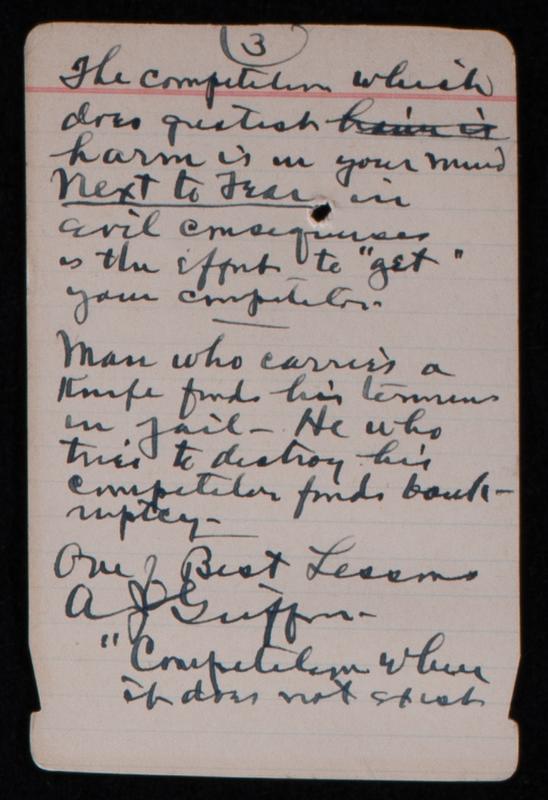 3
The competition which
does greatest harm is
harm is in your mind
Next to Fear, in
evil consequences
is the effort to "get"
your competitor.
Man who carries a
Knife finds his terminus
in jail - He who
tries to destroy his
competitor finds bank-
ruptcy -
One of Best Lessons
A J Griffin -
"Competition where
it does not exist